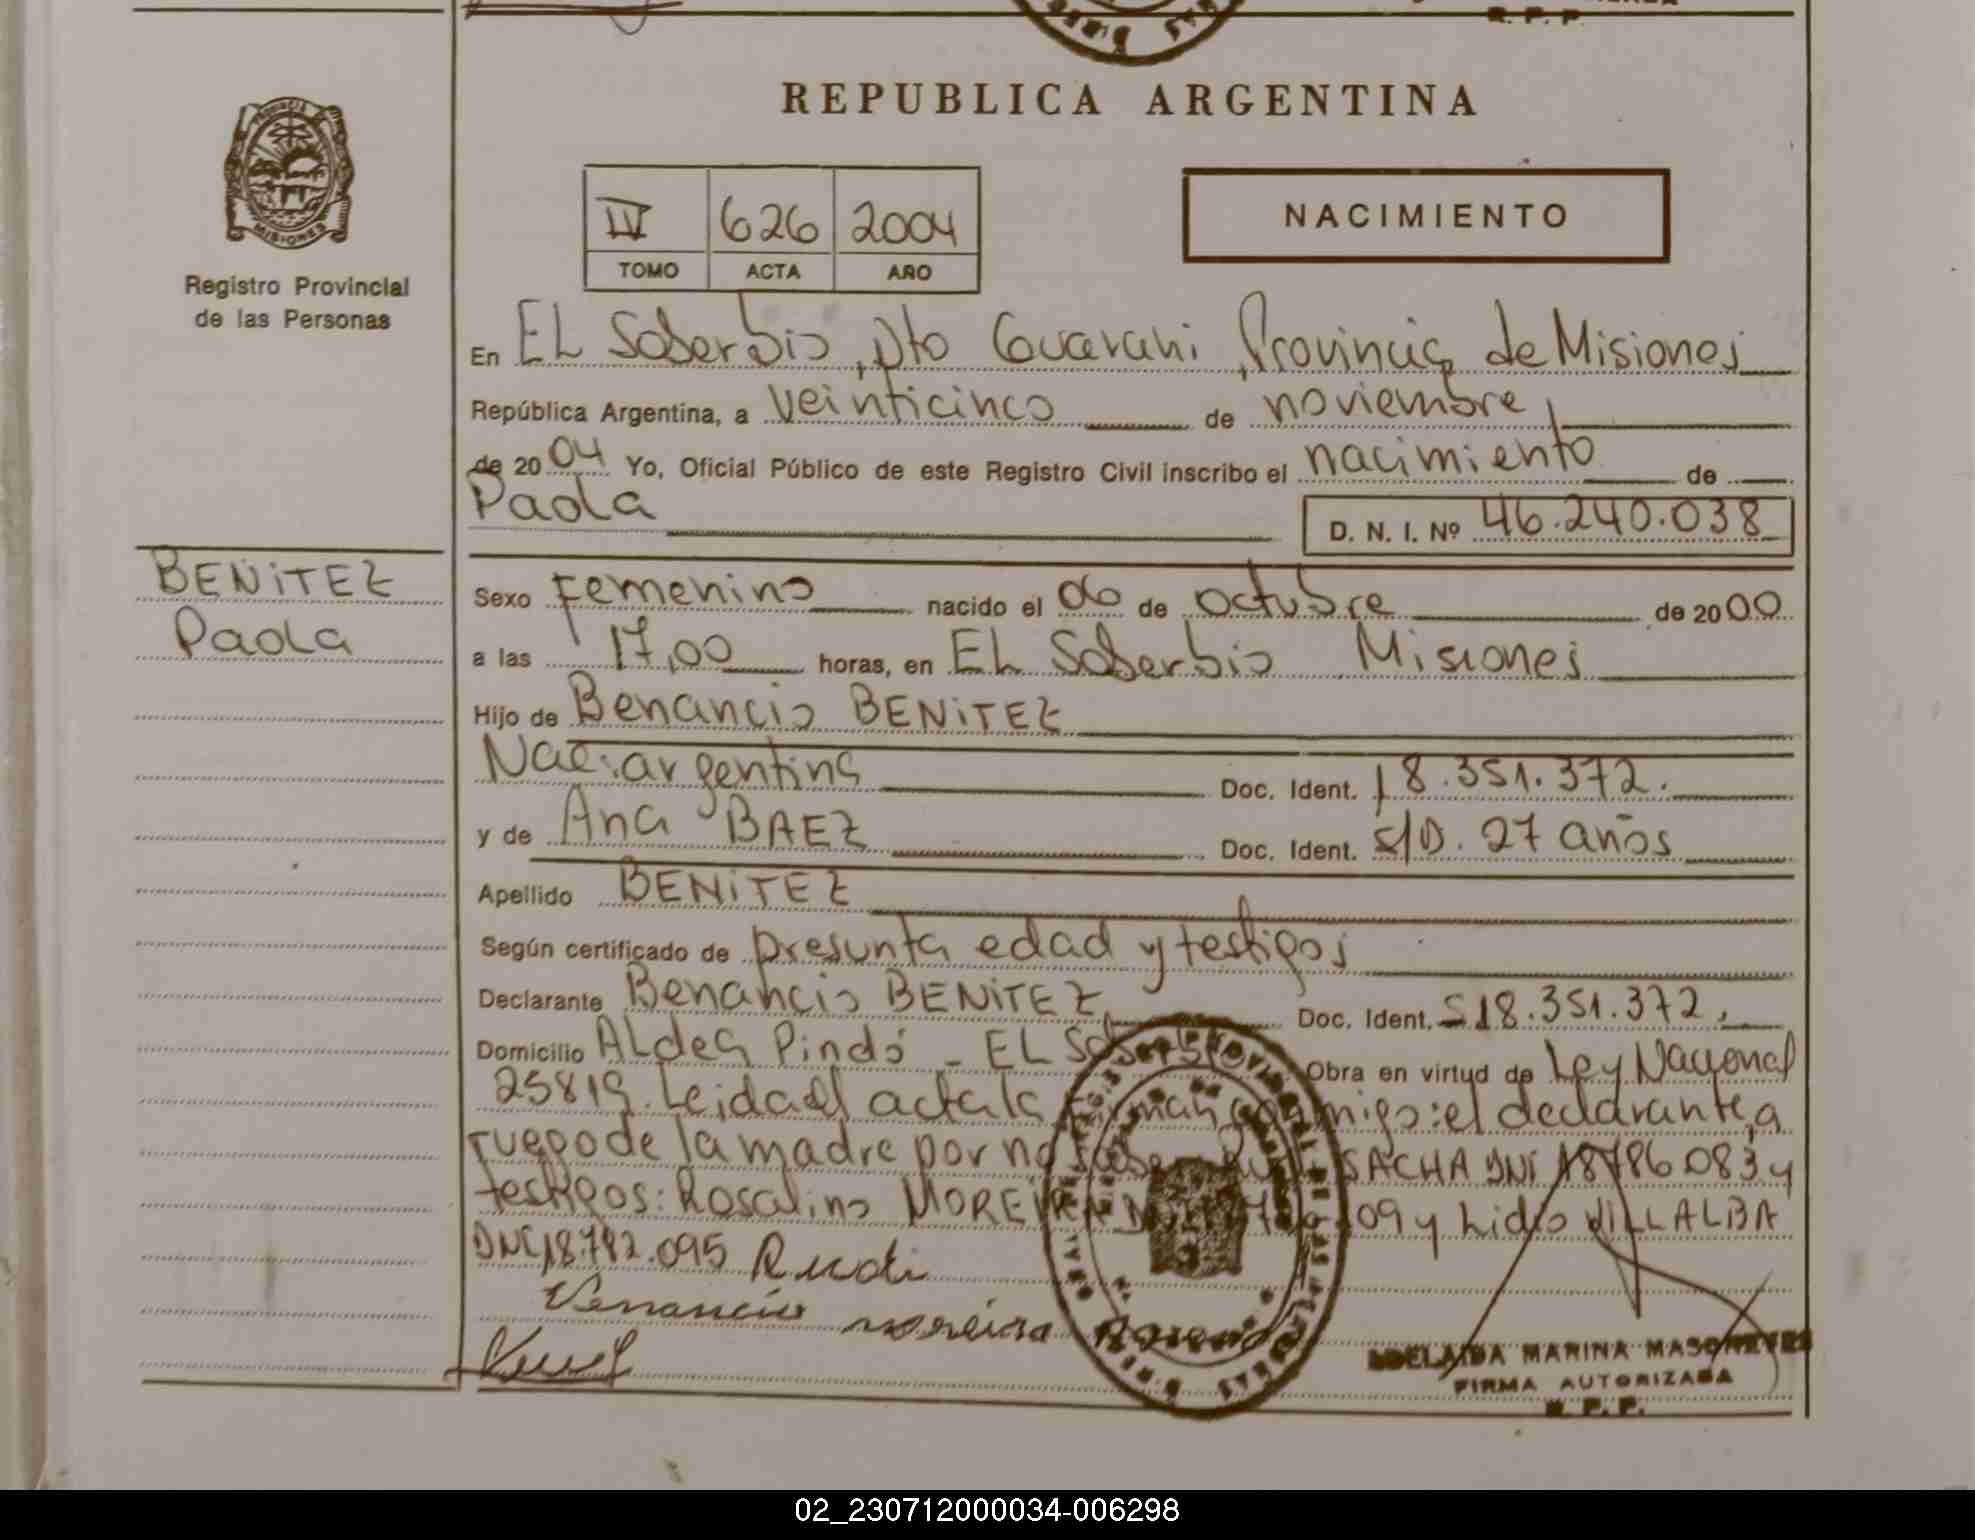 REPUBLICA ARGENTINA
PROVINCIA
MISIONES
Registro Provincial
de las Personas
IV 626 2004
TOMO ACTA AÑO
NACIMIENTO
En EL Soberbio, Dto Guarani, Provincia de Misiones
República Argentina, a veinticinco de noviembre
de 2004 Yo, Oficial Público de este Registro Civil inscribo el nacimiento de
Paola
D. N. I. Nº 46.240.038
BENITEZ
Paola
Sexo Femenino nacido el 06 de octubre de 2000
a las 17,00 horas, en EL Soberbio Misiones
Hijo de Benancio BENITEZ
Nac: argentina Doc. Ident. 18.351.372.
y de Ana BAEZ Doc. Ident. S/D. 27 años
Apellido BENITEZ
Según certificado de presunta edad y testigos
Declarante Benancio BENITEZ Doc. Ident. 18.351.372.
Domicilio ALdea Pindó - EL Soberbio Obra en virtud de Ley Nacional
25819. Leida el acta la firman conmigo: el declarante, a
ruego de la madre por no SACHA DNI 18786.083 y
testigos: Rosalino MOREIRA 109 y Lidio VILLALBA
DNI 18.792.095 Rudi
Venancio moreira
ADELAIDA MARINA MASONEVES
FIRMA AUTORIZADA
R. P. P.
02_230712000034-006298